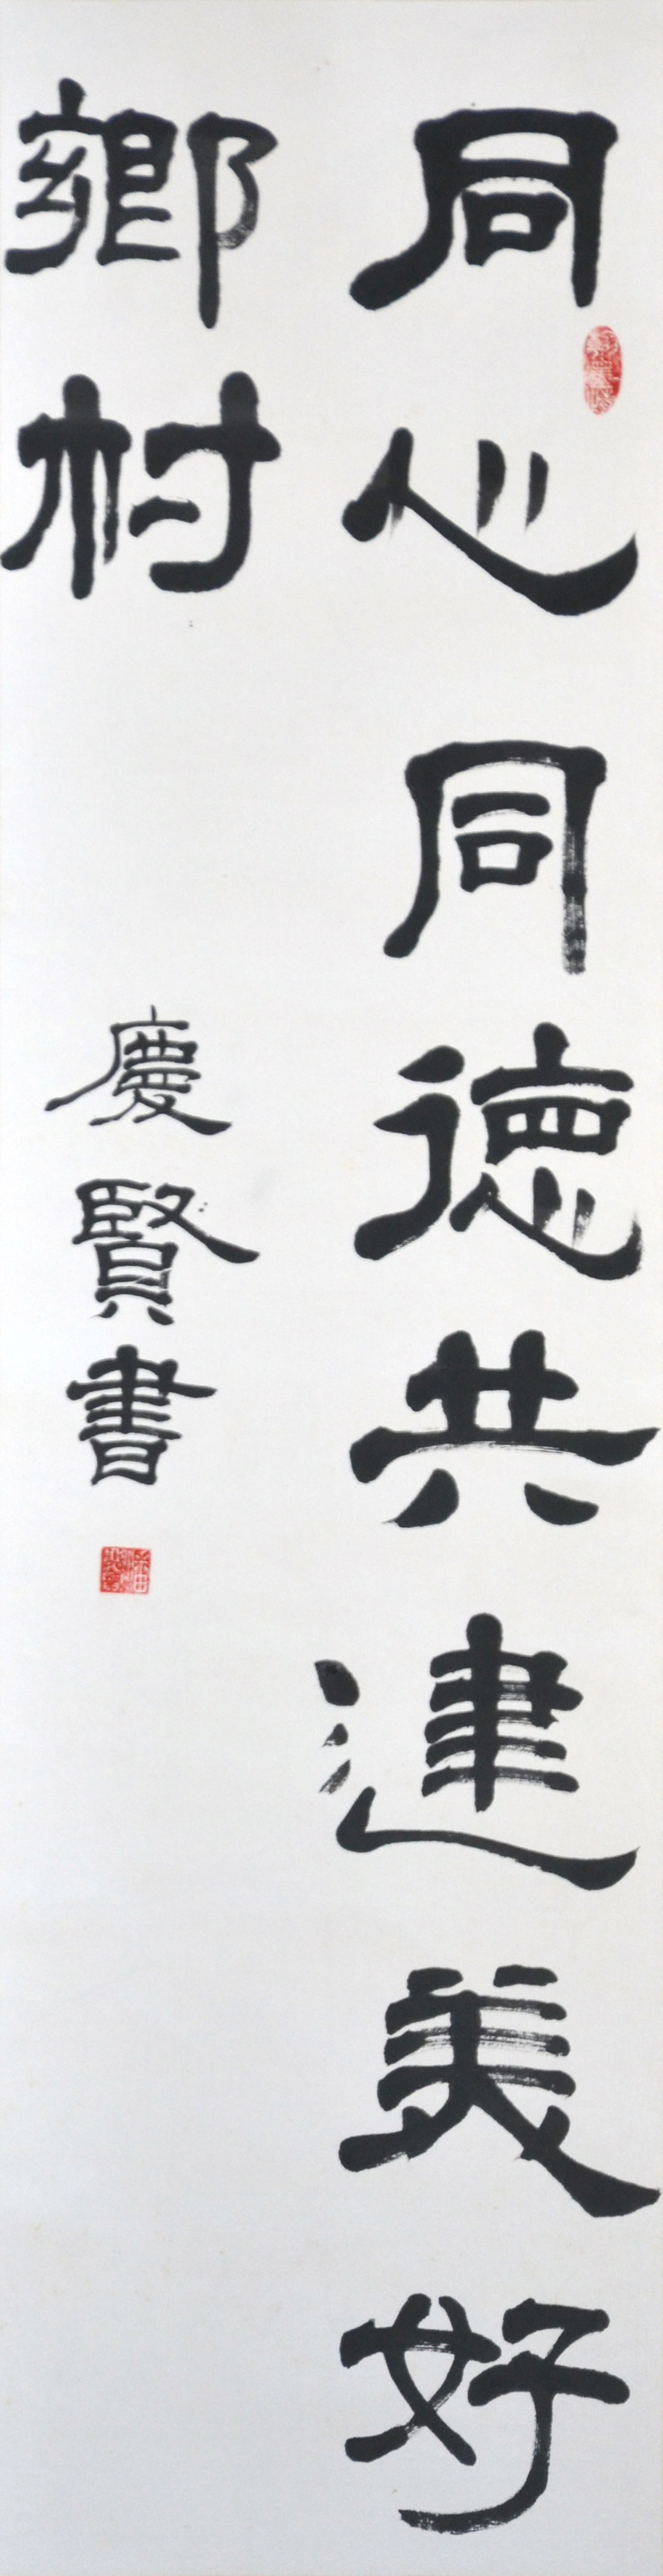 同心同德共建美好
鄉村
慶賢書